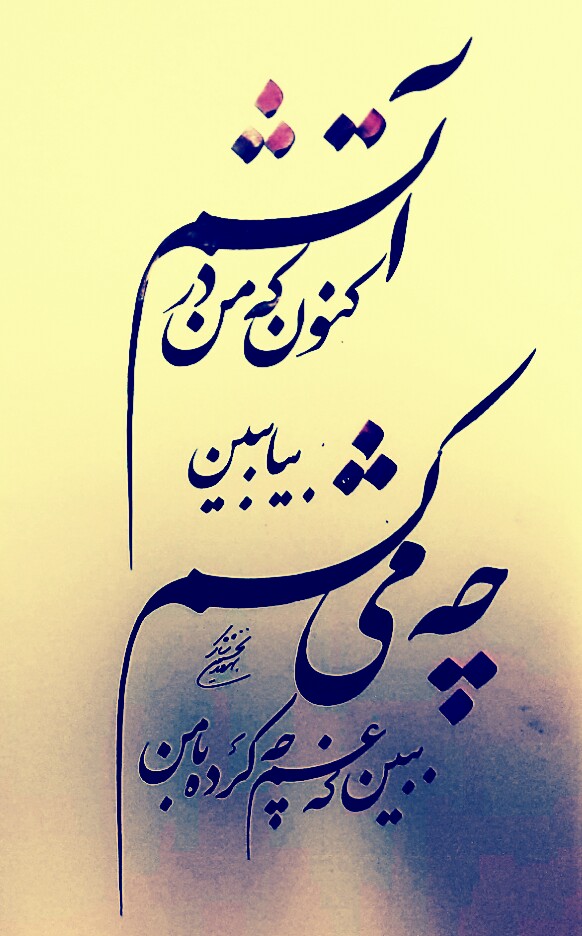 اکنون که من در آتشم
بیا ببین
چه می کشم
ببین که غم چه کرده با من